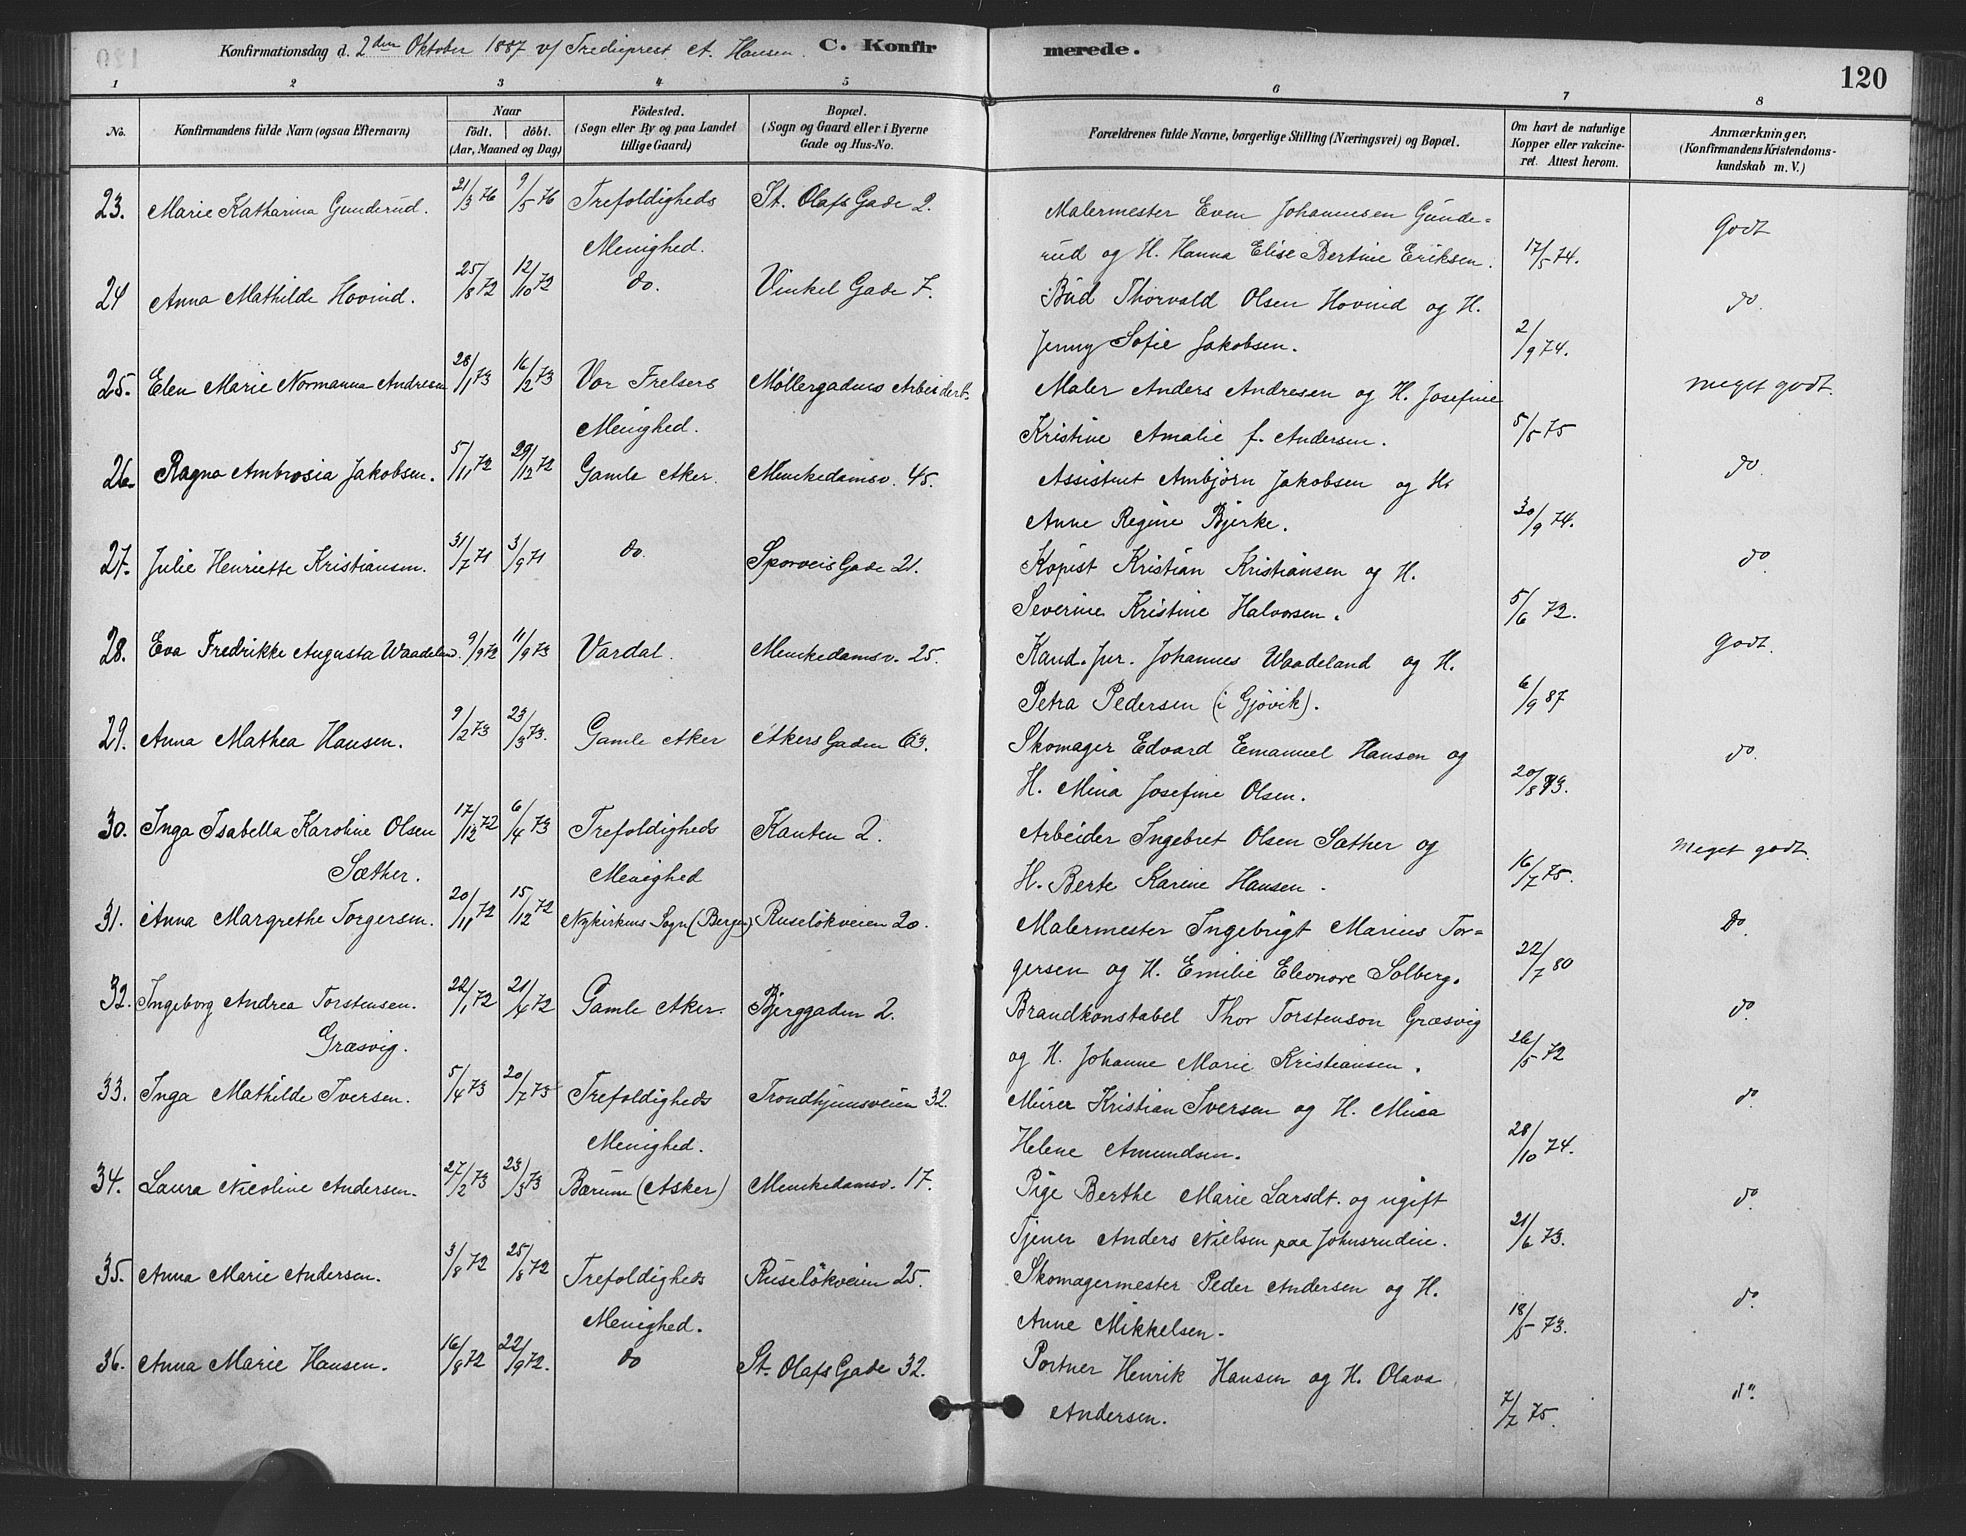 Konfirmationsdag d. 2den Oktober 1887 v/ Tredieprest A. Hansen. C. Konfirmerede. 120
1 2 3 4 5 6 7 8
No. Konfirmandens fulde Navn (ogsaa Efternavn) Naar födt. döbt. (Aar, Maaned og Dag) Födested. (Sogn eller By og paa Landet tillige Gaard) Bopæl. (Sogn og Gaard eller i Byerne Gade og Hus-No. Forældrenes fulde Navne, borgerlige Stilling (Næringsvei) og Bopæl. Om havt de naturlige Kopper eller vakcineret. Attest herom. Anmærkninger, (Konfirmandens Kristendomskundskab m. V.)
23. Marie Katharina Gunderud. 21/3 76 9/5 76 Trefoldigheds Menighed. St. Olafs Gade 2. Malermester Even Johannesen Gunde=
rud og H. Hanna Elise Bertine Eriksen. 17/5 74. Godt
24 Anna Mathilde Hovind. 25/8 72 12/10 72 do. Vinkel Gade 7. Bud Thorvald Olsen Hovind og H.
Jenny Sofie Jakobsen. 2/9 74. do
25. Elen Marie Normanna Andresen 28/1 73 16/2 73 Vor Frelsers Menighed. Møllergadens Arbeiderb. Maler Anders Andresen og H. Josefine
Kristine Amalie f. Andersen. 5/5 75 meget godt.
26. Ragna Ambrosia Jakobsen. 5/11 72 29/12 72 Gamle Aker. Munkedamsv. 45. Assistent Ambjörn Jakobsen og H.
Anne Regine Bjerke. 30/9 74. do
27. Julie Henriette Kristiansen. 31/7 71 3/9 71 do. Sporveis Gade 21. Kopist Kristian Kristiansen og H.
Severine Kristine Halvorsen. 5/6 72. do
28. Eva Fredrikke Augusta Waadeland. 9/9 72 11/9 73 Vardal. Munkedamsv. 25. Kand. jur. Johannes Waadeland og H.
Petra Pedersen (i Gjøvik). 6/9 87 Godt.
29. Anna Mathea Hansen. 9/2 73 23/3 73. Gamle Aker Akers Gaden 63. Skomager Edvard Emanuel Hansen og
H. Mina Josefine Olsen. do.
30. Inga Isabella Karoline Olsen
Sæther. 17/12 72 6/4 73 Trefoldigheds Menighed Kanten 2. Arbeider Ingebret Olsen Sæther og
H. Berte Karine Hansen. 16/7 75. Meget godt.
31. Anna Margrethe Torgersen. 20/11 72 15/12 72 Nykirkens Sogn (Bergen) Ruseløkveien 20. Malermester Ingebrigt Marius Tor=
gersen og H. Emilie Eleonore Solberg. 22/7 80 Do.
32. Ingeborg Andrea Torstensen.
Græsvig. 22/1 72 21/4 72 Gamle Aker. Bjerggaden 2. Brandkonstabel Thor Torstenson Græsvig
og H. Johanne Marie Kristiansen. 26/5 72 do.
33. Inga Mathilde Iversen. 5/4 73 20/7 73 Trefoldigheds Menighed. Trondhjemsveien 32. Murer Kristian Iversen og H. Mina
Helene Amundsen. 28/10 74. do.
34. Laura Nicoline Andersen. 27/2 73 23/3 73 Bærum (Asker) Munkedamsv. 17. Pige Berthe Marie Larsdt. og ugift
Tjener Anders Nielsen paa Johnsrudeie. 21/6 73. do
35. Anna Marie Andersen. 3/8 72 25/8 72 Trefoldigheds Menighed. Ruseløkveien 25. Skomagermester Peder Andersen og H.
Anne Mikkelsen. 18/5 73. do.
36. Anna Marie Hansen. 16/8 72 22/9 72. do St. Olafs Gade 32. Portner Henrik Hansen og H. Olava
Andersen. 7/7 75. do.